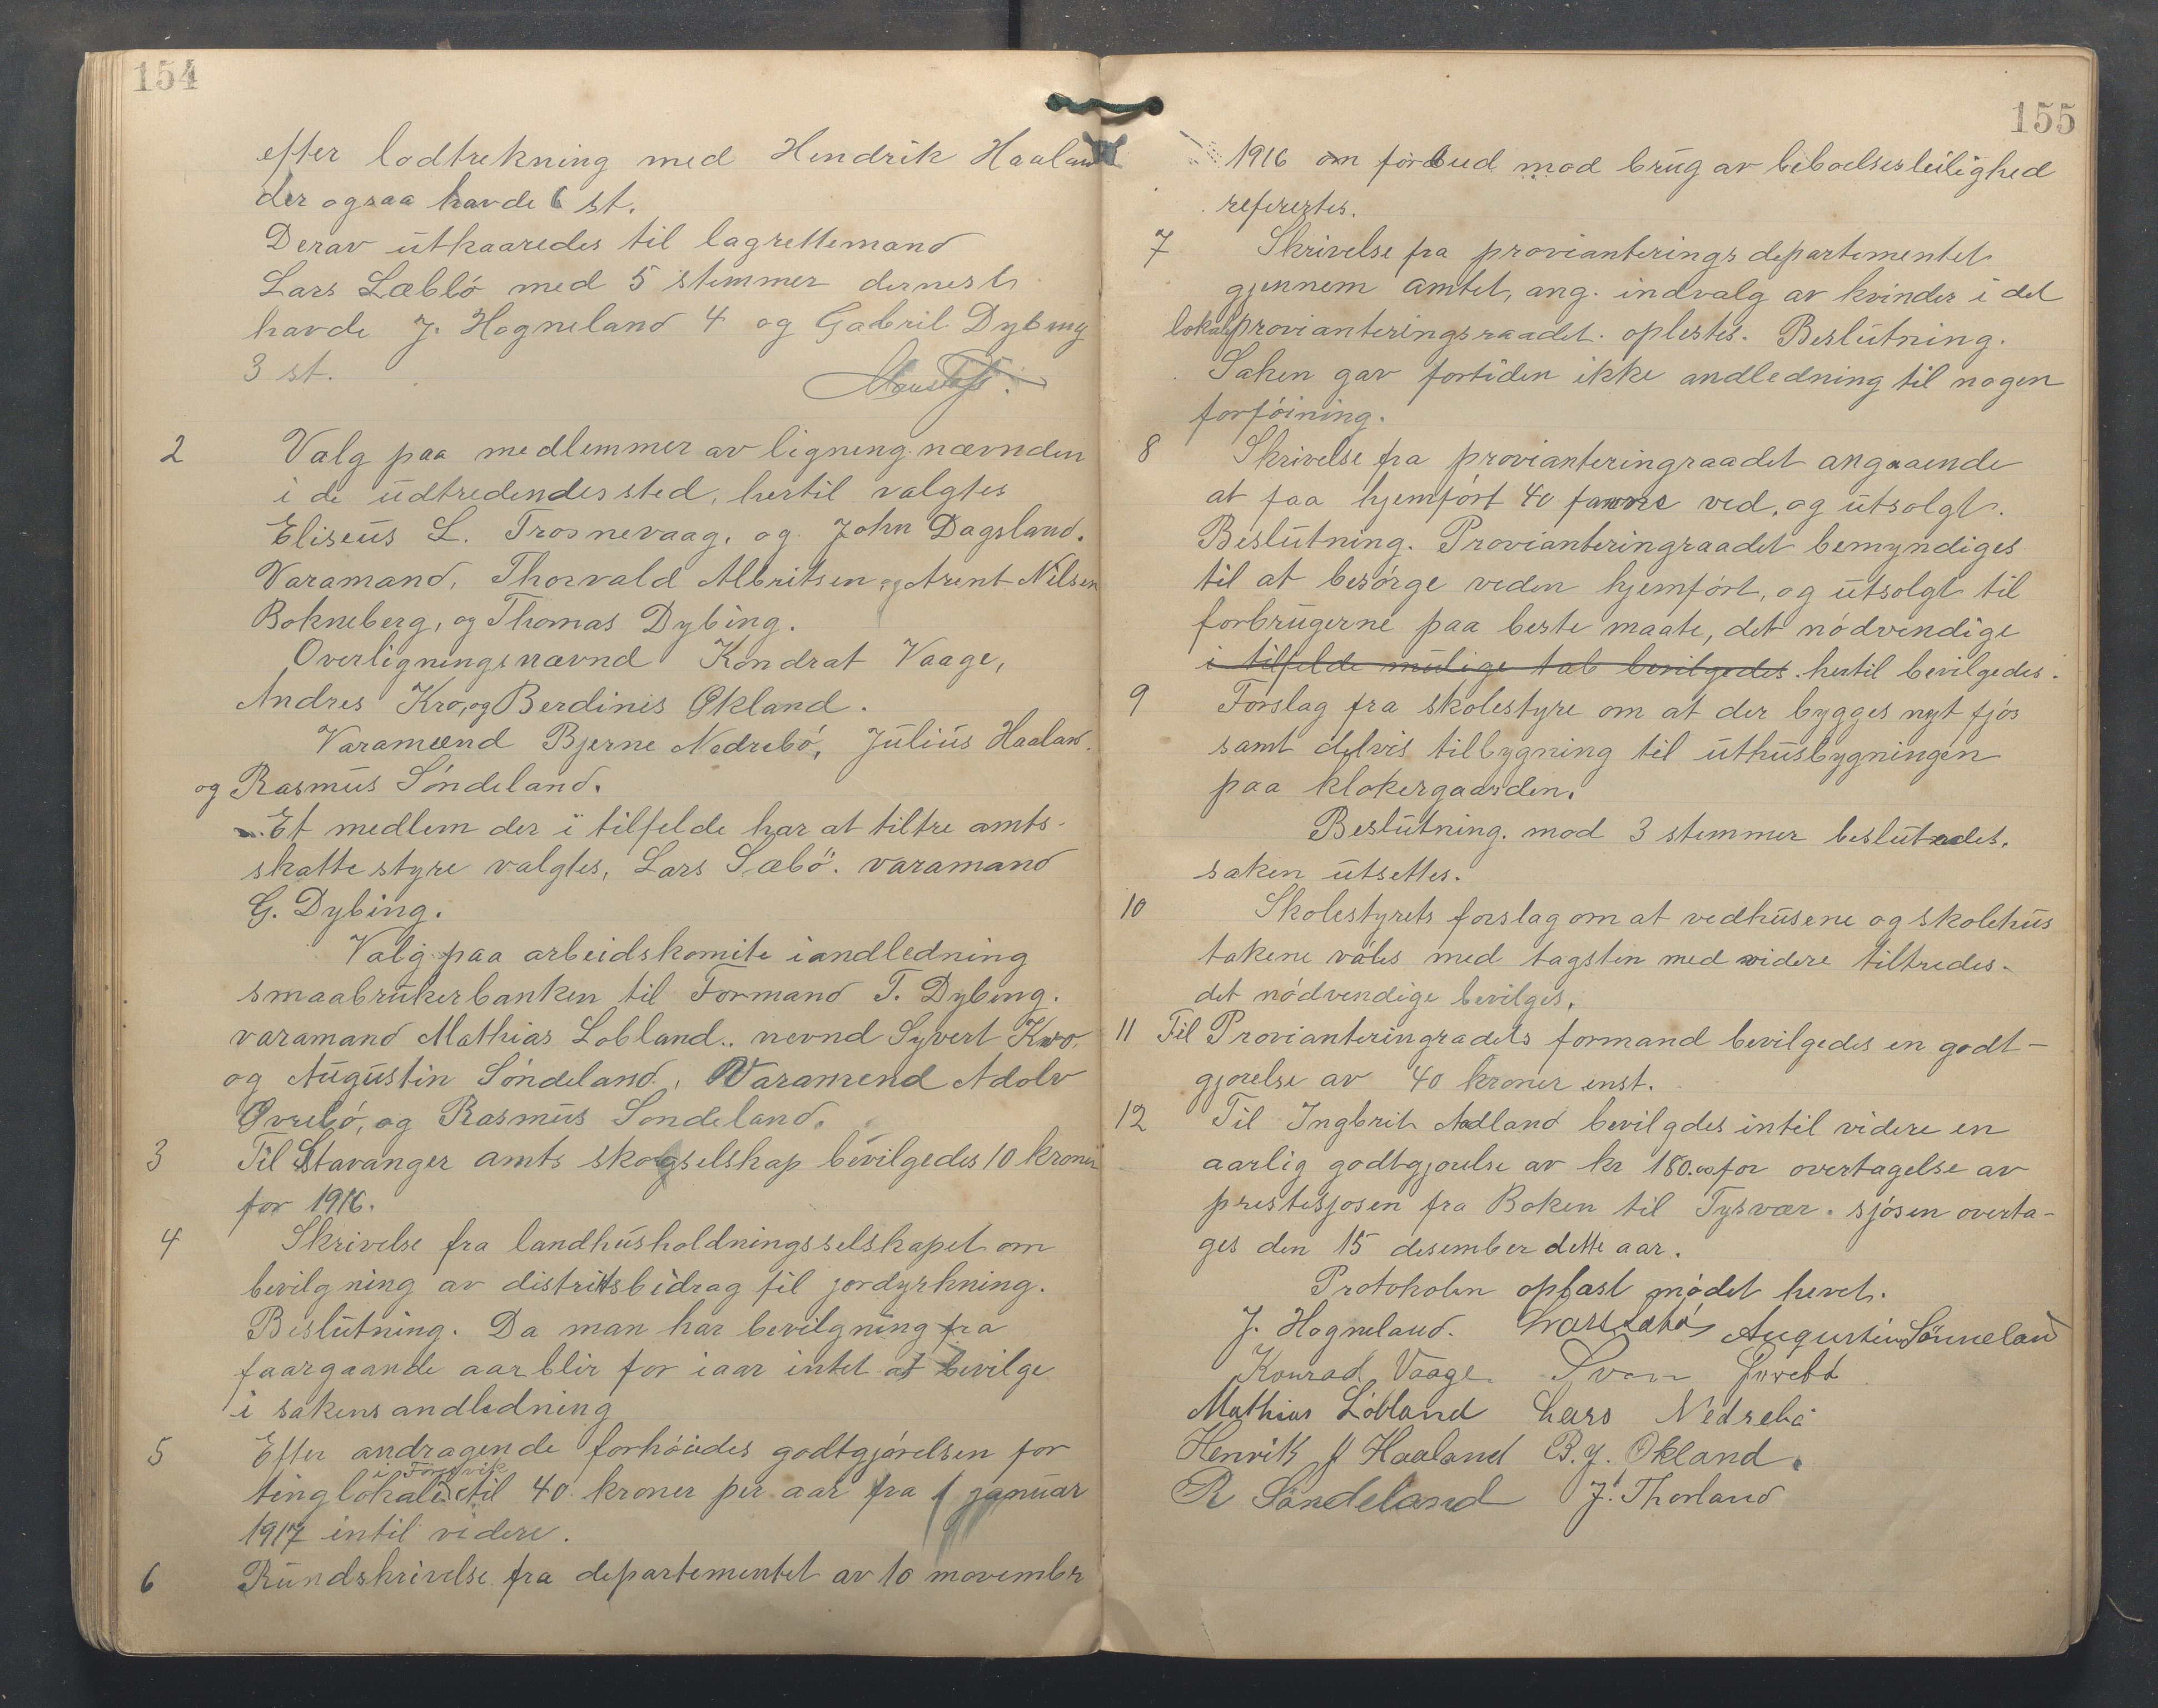 154
efter lodtrekning med Hendrik Haaland
der ogsaa havde 6 st.
Derav utkaaredes til lagrettemand
Lars Læblö med 5 stemmer dernest
havde J. Hogneland 4 og Gabril Dybing
3 st.
2 Valg paa medlemmer av ligning nævnden
i de udtredendes sted, hertil valgtes
Eliseus L. Trosnevaag, og John Dagsland.
Varamand, Thorvald Albritsen og Arent Nilsen
Bokneberg, og Thomas Dybing.
Overligningsnævnd Kondrat Vaage,
Andres Kro, og Berdinis Økland.
Varamænd Bjerne Nedrebö, Julius Haaland.
og Rasmus Söndeland.
Et medlem der i tilfelde har at tiltre amts-
skattestyre valgtes, Lars Sæbö. varamand
G. Dybing.
Valg paa arbeidskomite iandledning
smaabrukerbanken til Formand T. Dybing.
varamand Mathias Lobland.. nevnd Syvert Kro.
og Augustin Söndeland, Varamend Adolv
Øvrebö, og Rasmus Sondeland.
3 Til Stavanger amts skogselskap bevilgedes 10 kroner
for 1916.
4 Skrivelse fra landhusholdningsselskapet om
bevilgning av distriktsbidrag til jordyrkning.
Beslutning. Da man har bevilgning fra
faargaande aar blir for iaar intet at bevilge
i sakens andledning
5 Efter andragende forhöides godtgjörelsen for
tinglokale i Førrsvik til 40 kroner per aar fra 1 januar
1917 intil videre.
6 Rundskrivelse fra departementet av 10 movember
155
1916 om forbud mod brug av beboelsesleilighed
refirertes.
7 Skrivelse fra provianterings departementet
gjennem amtet, ang. indvalg av kvinder i det
lokale provianteringsraadet. oplestes. Beslutning.
Saken gav fortiden ikke andledning til nogen
forföining.
8 Skrivelse fra provianteringraadet angaaende
at faa hjemfört 40 favne ved, og utsolgt.
Beslutning. Provianteringraadet bemyndiges
til at besörge veden hjemfört, og utsolgt til
forbrugerne paa beste maate, det nödvendige
i tilfelde mulige tab bevilgedes. hertil bevilgedes.
9 Forslag fra skolestyre om at der bygges nyt fjös
samt delvis tilbygning til uthusbygningen
paa klokergaarden.
Beslutning. mod 3 stemmer beslutedes.
saken utsettes.
10 Skolestyrets forslag om at vedhusene og skolehus
takene väles med tagsten med videre tiltredes.
det nödvendige bevilges.
11 Til Provianteringradets formand bevilgedes en godt-
gjorelse av 40 kroner enst.
12 Til Ingbrit Aadland bevilgdes intil videre en
aarlig godtgjorelse av kr 180.00 for overtagelse av
prestesjosen fra Boken til Tysvær. sjösen overta-
ges den 15 desember dette aar.
Protokolen oplast mödet hevet.
J. Hogneland. Lars Sæbö Augustin Sönneland
Konrad Vaage. Sven Øvrebö
Mathias Löbland Lars Nedrebö
Henrik J Haaland B. J. Økland.
R Söndeland J. Thorland